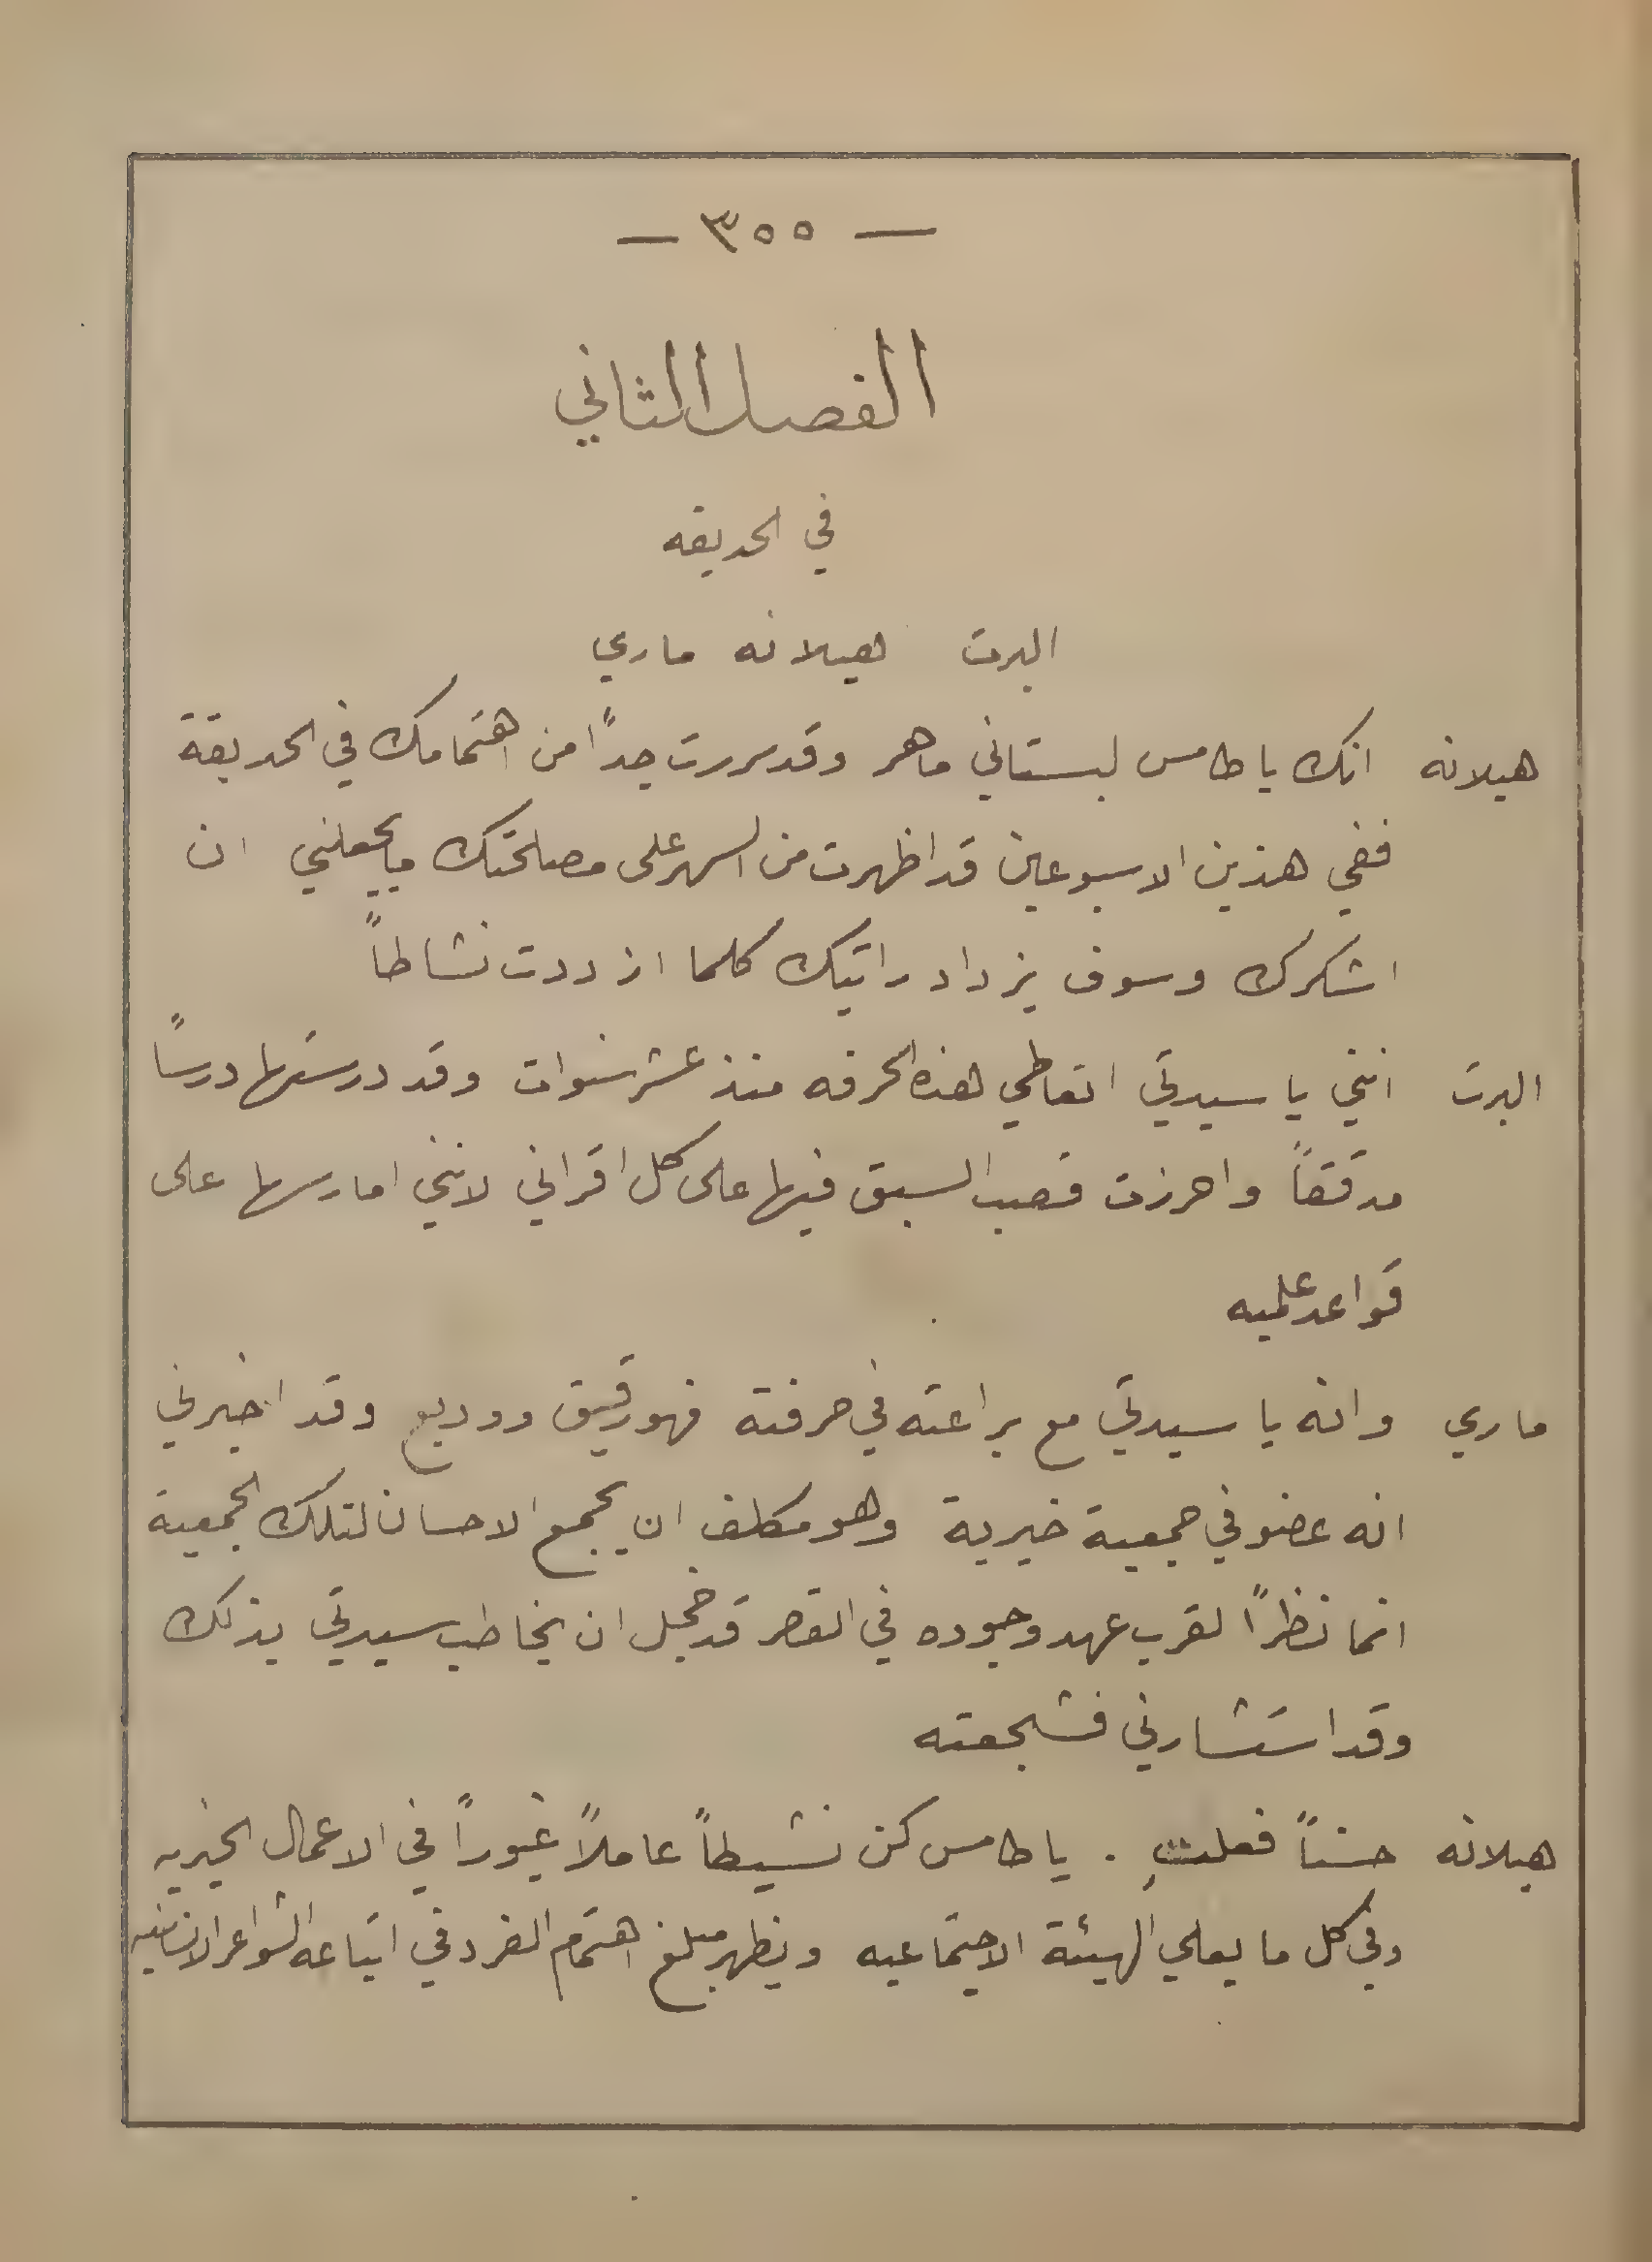 — ٣٥٥ —
الفصل الثاني
في الحديقه
البرت هيلانه ماري
هيلانه انك يا طامس لبستاني ماهر وقد سررت جداً من اهتمامك في الحديقة
ففي هذين الاسبوعين قد اظهرت من السهر على مصلحتك ما يجعلني ان
اشكرك وسوف يزداد راتبك كلما ازددت نشاطاً
البرت انني يا سيدتي اتعاطى هذه الحرفه منذ عشر سنوات وقد درستها درساً
مدققاً واحرزت قصب السبق فيها على كل اقراني لانني امارسها على
قواعد علميه
ماري وانه يا سيدتي مع براعته في حرفته فهو رقيق ووديع وقد اخبرني
انه عضو في جمعية خيرية وهو مكلف ان يجمع الاحسان لتلك الجمعية
انما نظراً لقرب عهد وجوده في القصر قد خجل ان يخاطب سيدتي بذلك
وقد استشارني فشجعته
هيلانه حسناً فعلتِ . يا طامس كن نشيطاً عاملاً غيوراً في الاعمال الخيريه
وفي كل ما يعلي الهيئة الاجتماعيه ويظهر مبلغ اهتمام الفرد في اتباعه الشواعر الانسانيه